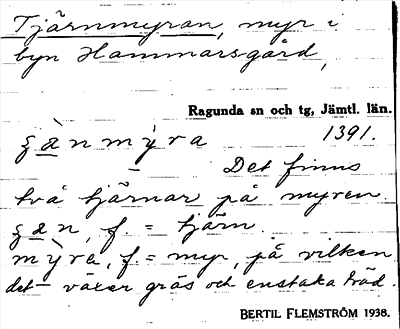 Tjärnmyran, myr i
byn Hammarsgård,
Ragunda sn och tg, Jämtl. län.
ʂa̲nmỳra 1391.
Det finns
två tjärnar på myren
ʂa̲n, f. = tjärn.
mỳra, f. = myr, på vilken
det växer gräs och enstaka träd.
BERTIL FLEMSTRÖM 1938.